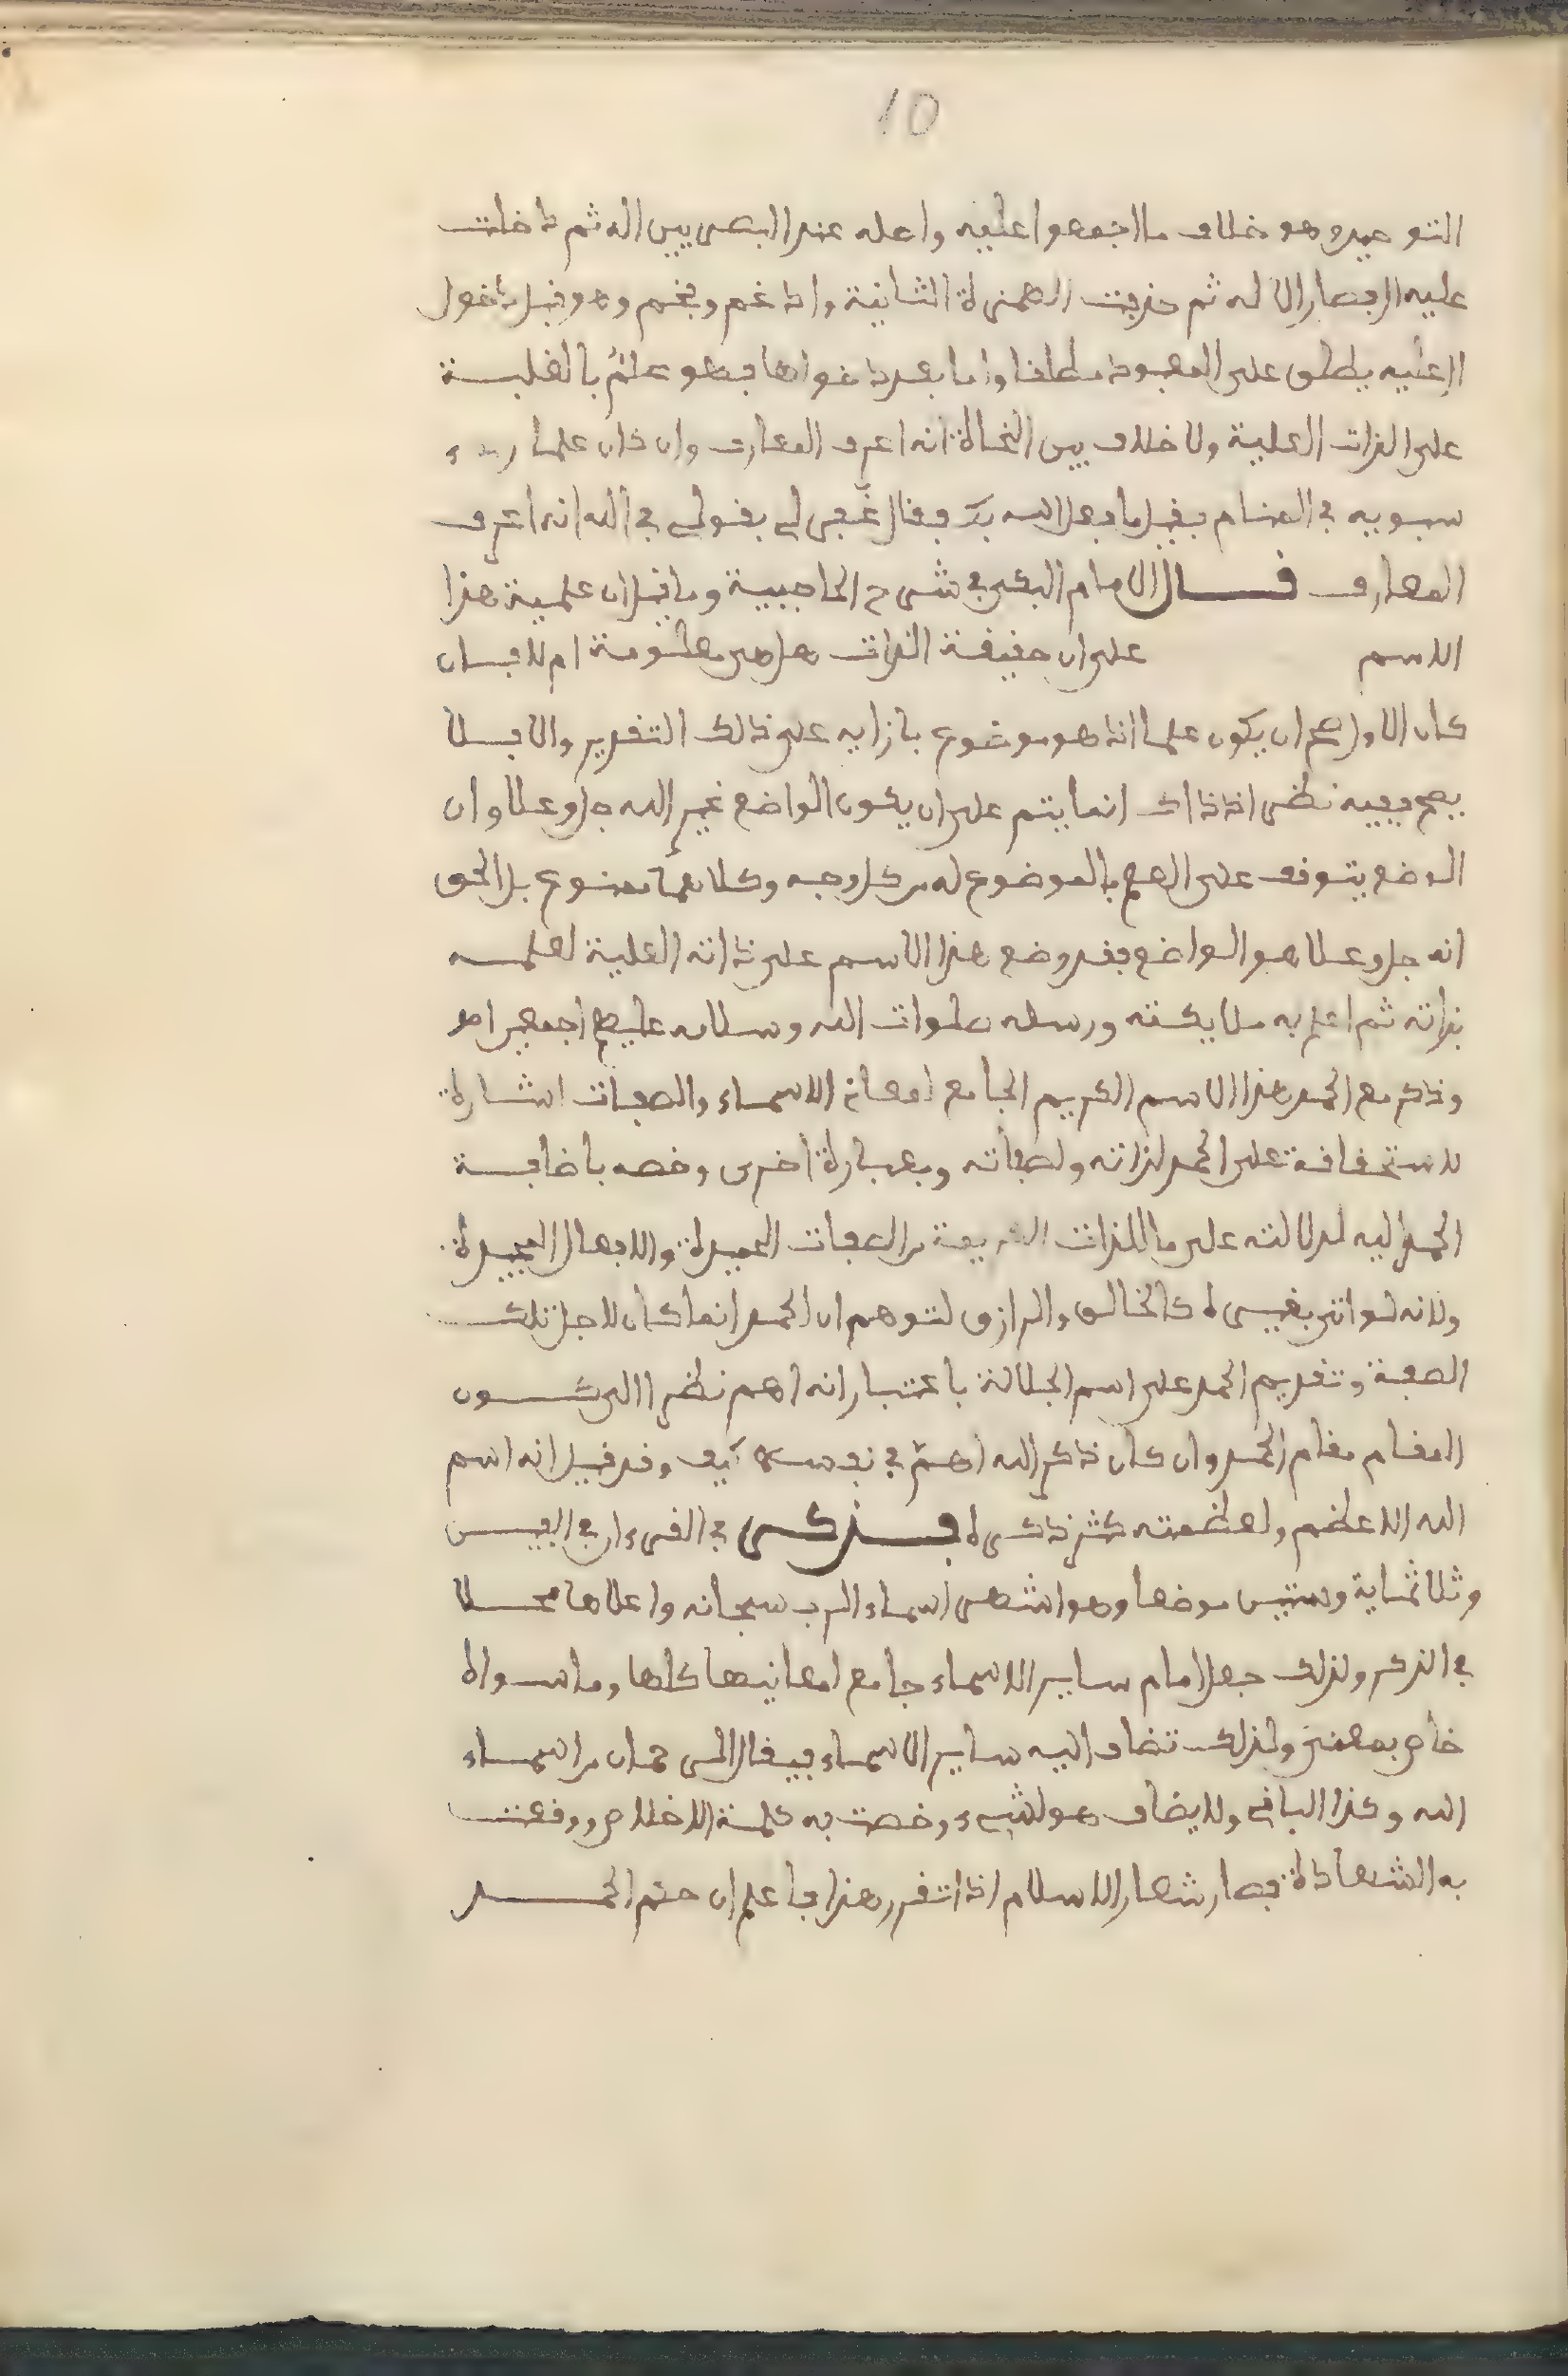 10
التوحيد وهو خلاف ما اجمعوا عليه واصله عند البصريين اله ثم دخلت
عليه ال فصار الاله ثم حذفت الهمزة الثانية وادغم وفخم وهو قبل دخول
ال عليه يطلق على المعبود مطلقا واما بعد دخولها فهو علم بالغلبة
على الذات العلية ولا خلاف بين النحاة انه اعرف المعارف وان كان علما
سبويه في المنام فقيل ما فعل الله بك فقال غفر لي بقولي في الله انه اعرف
المعارف قال الامام البكي في شرح الحاجبية وما قيل ان علمية هذا
الاسم على ان حقيقة الذات هل هي معلومة ام لا فان
كان الاول صح ان يكون علما اذ هو موضوع بازايه على ذلك التقدير والا فلا
يصح ففيه نظر اذ ذاك انما يتم على ان يكون الواضع غير الله جل وعلا وان
الوضع يتوقف على العلم بالموضوع له من كل وجه وكلاهما ممنوع بل الحق
انه جل وعلا هو الواضع فقد وضع هذا الاسم على ذاته العلية لعلمه
بذاته ثم اعلم به ملايكته ورسله صلوات الله وسلامه عليهم اجمعين اهـ
وذكر مع الحمد هذا الاسم الكريم الجامع لمعان الاسماء والصفات اشارة
لاستحقاقه على الحمد لذاته ولصفاته وبعبارة اخرى وخصه باضافة
الحمد اليه لدلالته على ما للذات الشريفة من الصفات الحميدة والافعال المجيدة
ولانه لو اتى بغيره كالخالق والرازق لتوهم ان الحمد انما كان لاجل تلك
الصفة وتقديم الحمد على اسم الجلالة باعتبار انه اهم نظرا الى كون
المقام مقام الحمد وان كان ذكر الله اهم في نفسه وقد قيل انه اسم
الله الاعظم ولعظمته كثر ذكره فذكر في القرءان في الفين
وثلاثماية وستين موضعا وهو اشهر اسماء الرب سبحانه واعلاها محلا
في الذكر ولذلك جعل امام ساير الاسماء جامع لمعانيها كلها وما سواه
خاص بمعنى ولذلك تضاف اليه ساير الاسماء فيقال الرحمان من اسماء
الله وكذا الباقي ولا يضاف هو لشيء وخصت به كلمة الاخلاص ووقعت
به الشهادة فصار شعار الاسلام اذا تقرر هذا فاعلم ان حتم الحمد